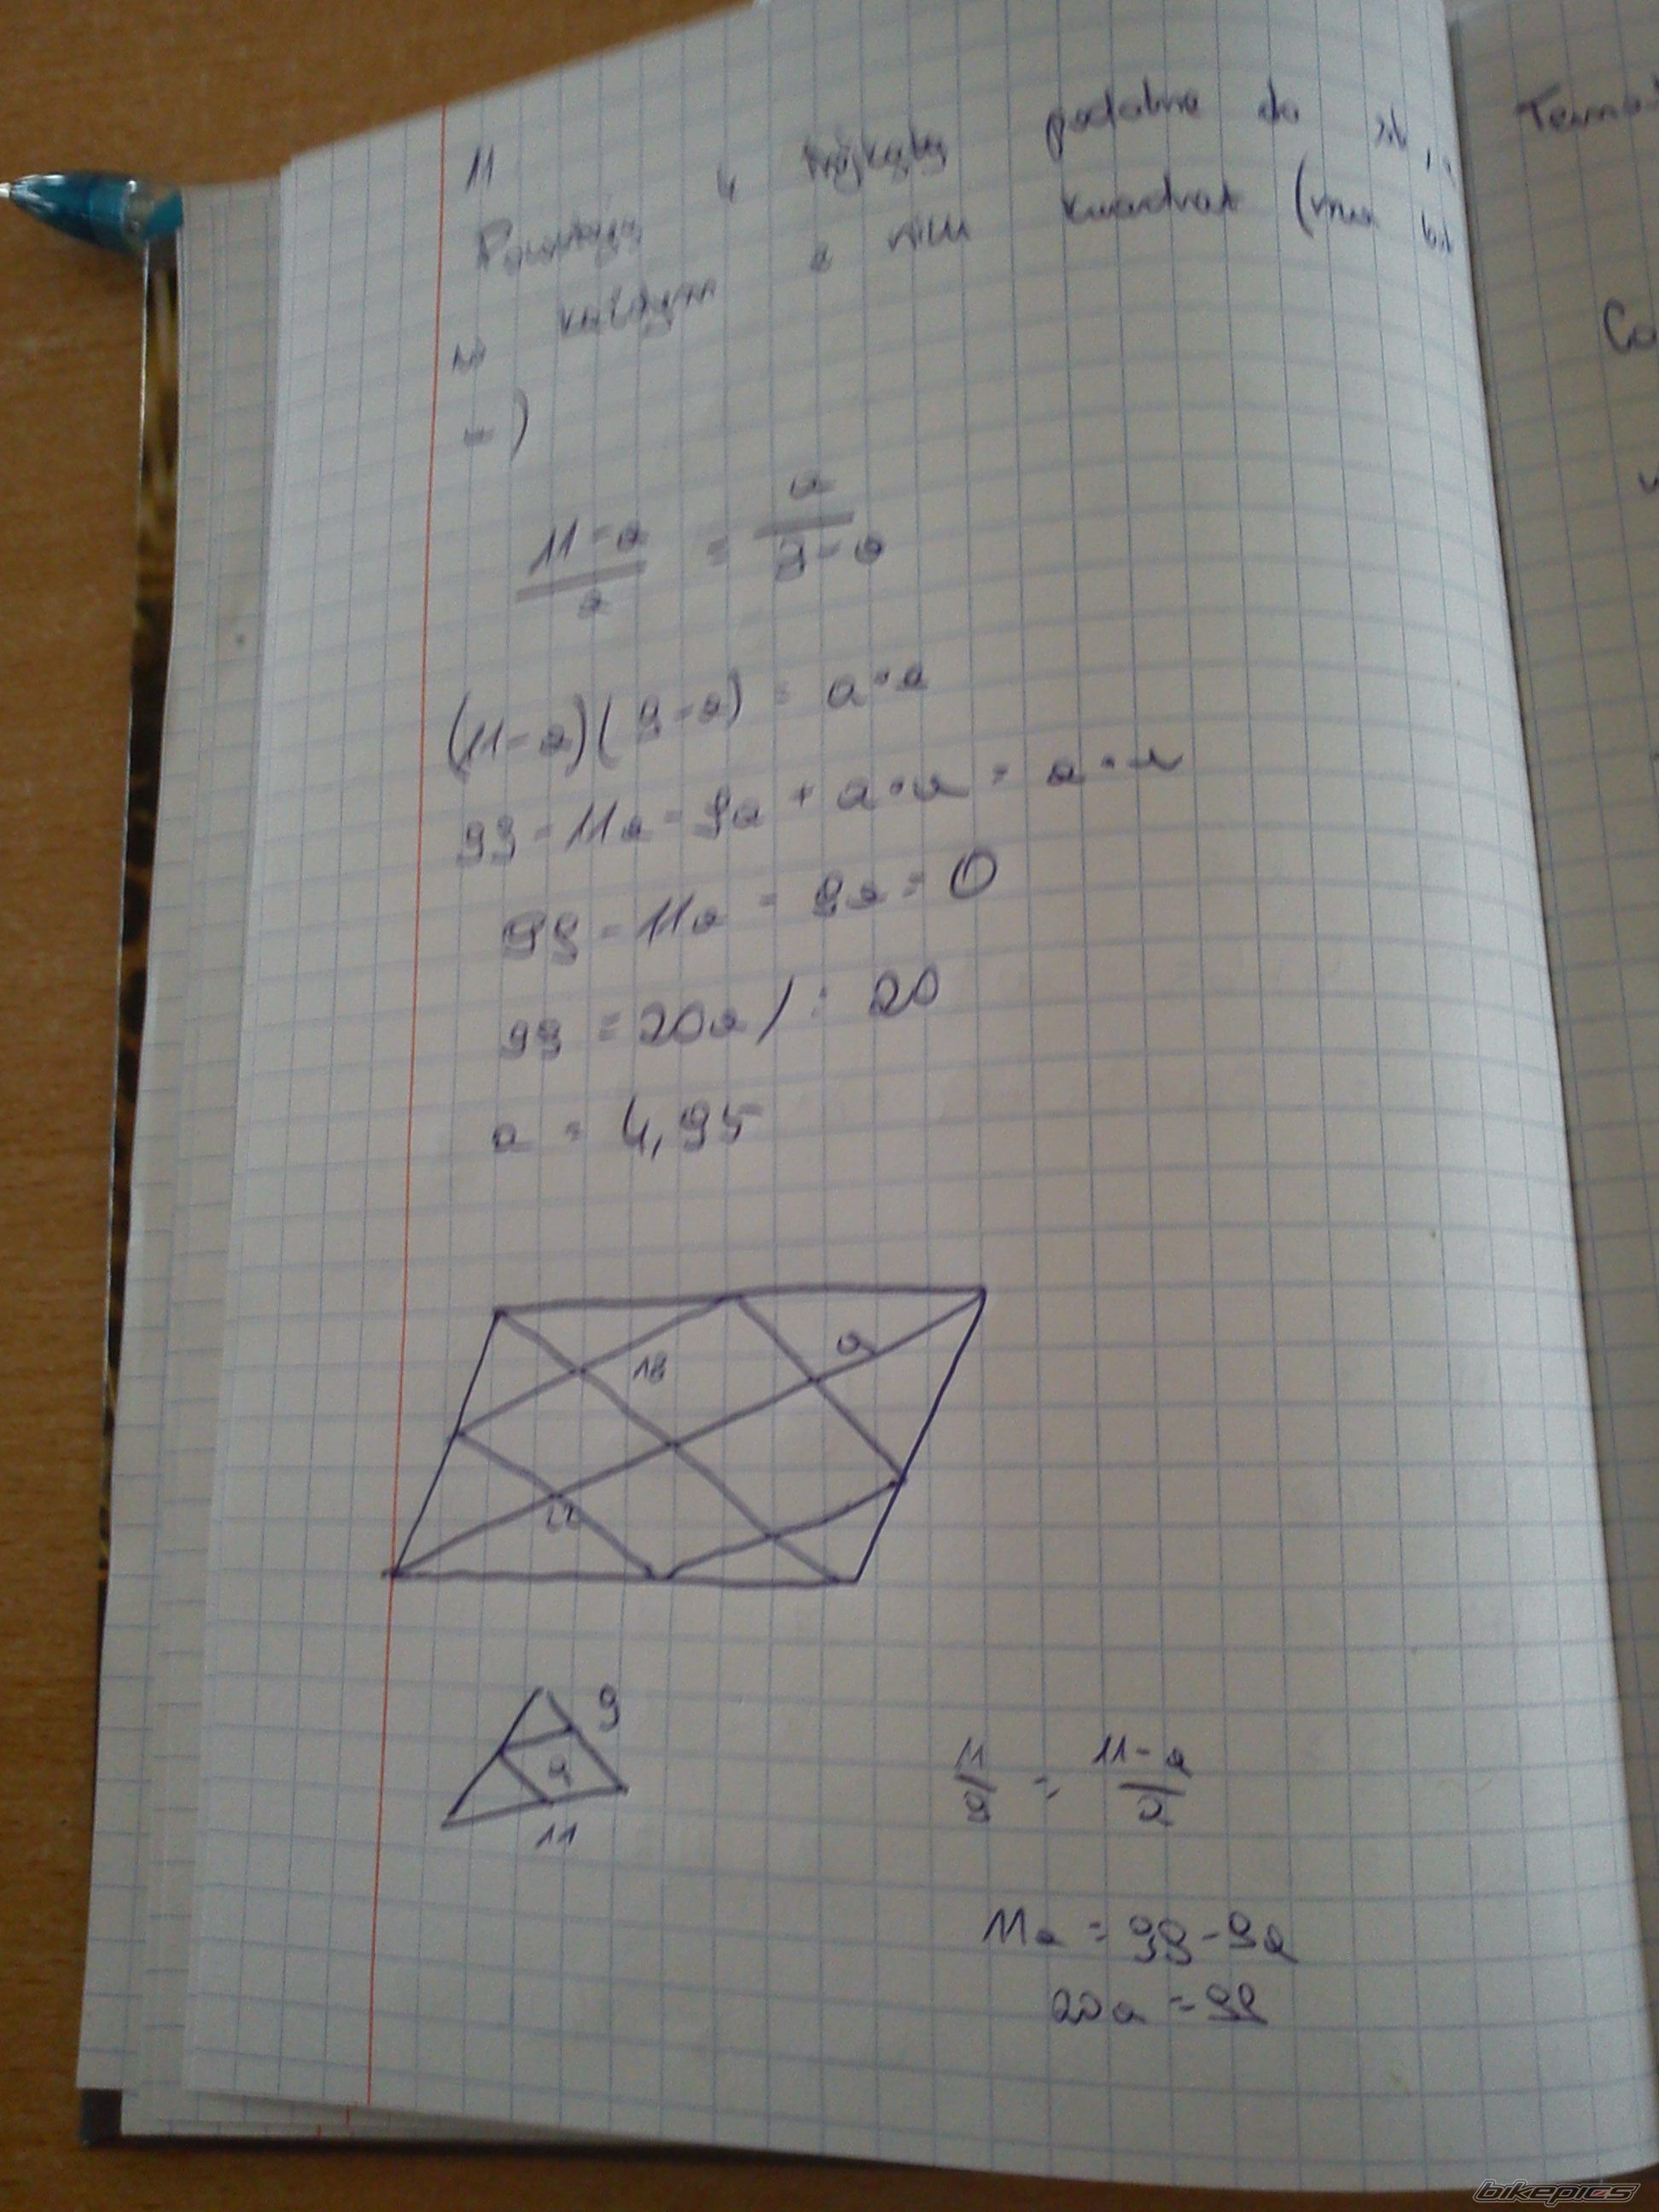 11
Powstają 4 trójkąty podobne do sb,
w każdym z nich kwadrat (ma
11-a / a = a / 9-a
(11-a)(9-a) = a·a
99-11a-9a+a·a = a·a
99-11a-9a=0
99=20a/:20
a = 4,95
18
a
22
9
a
11
11/9 = 11-a/a
11a = 99-9a
20a=99
Temat
Co
bikepics